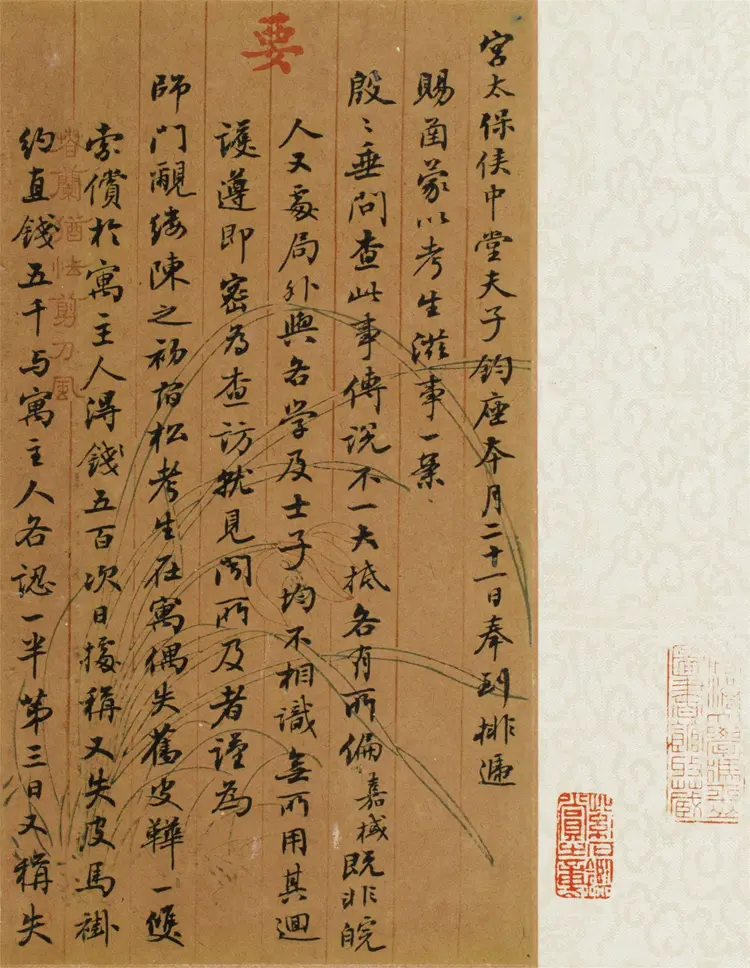 要
宮太保侯中堂夫子鈞座本月二十一日奉到排遞
賜函蒙以考生滋事一案
殷〻垂問查此事傳說不一大抵各有所偏嘉棫既非皖
人又處局外與各學及士子均不相識無所用其迴
護遵即密為查訪就見聞所及者謹為
師門覶縷陳之初宿松考生在寓偶失舊皮鞾一雙
索償於寓主人得錢五百次日據稱又失皮馬褂
約直錢五千与寓主人各認一半第三日又稱失
蘭猶怯剪刀風